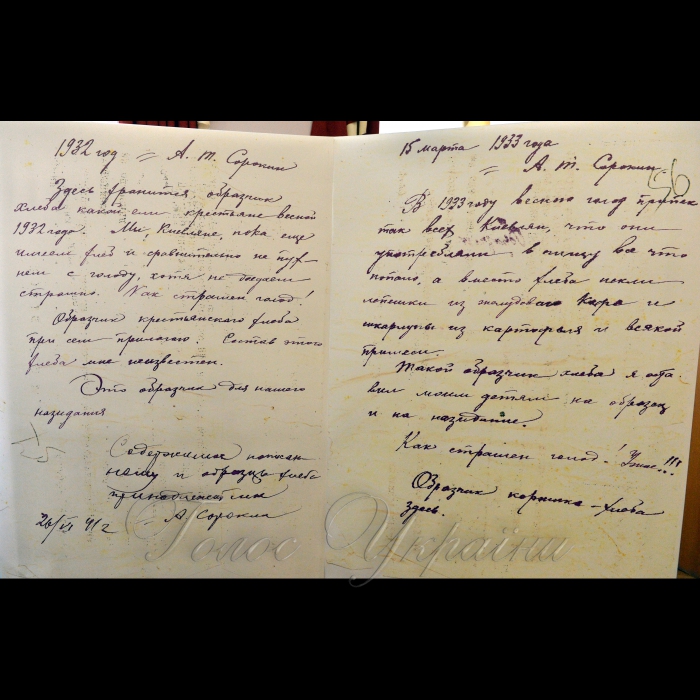 1932 год = А. Т. Сорокин
Здесь хранится образчик
хлеба какой ели крестьяне весной
1932 года. Мы, Киевляне, пока еще
имеем хлеб и сравнительно не пух-
нем с голоду, хотя не доедаем
страшно. Как страшен голод!
Образчик крестьянского хлеба
при сем прилагаю. Состав этого
хлеба мне неизвестен.
Это образчик для нашего
назидания
Содержимое
и образцы хлеба
26/VI 41 г = А. Сорокин
15 марта 1933 года
= А. Т. Сорокин
56
В 1933 году весной голод
так всех Киевлян, что они
употребляли в пищу все что
попало, а вместо хлеба пекли
лепешки из и
из картофеля и всякой
примеси.
Такой образчик хлеба я оста-
вил моим детям на образец
и на назидание.
Как страшен голод! Ужас!!!
Образчик коржика - хлеба
здесь.
Голос України